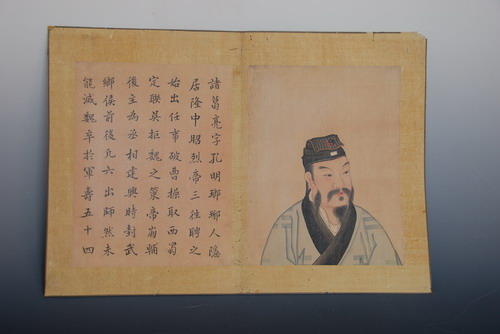 諸葛亮字孔明瑯琊人隱
居隆中昭烈帝三往聘之
始出任事破曹操取西蜀
定聯吳拒魏之策帝崩輔
後主為丞相建興時封武
鄉侯前後凡六出師然未
能滅魏卒於軍壽五十四